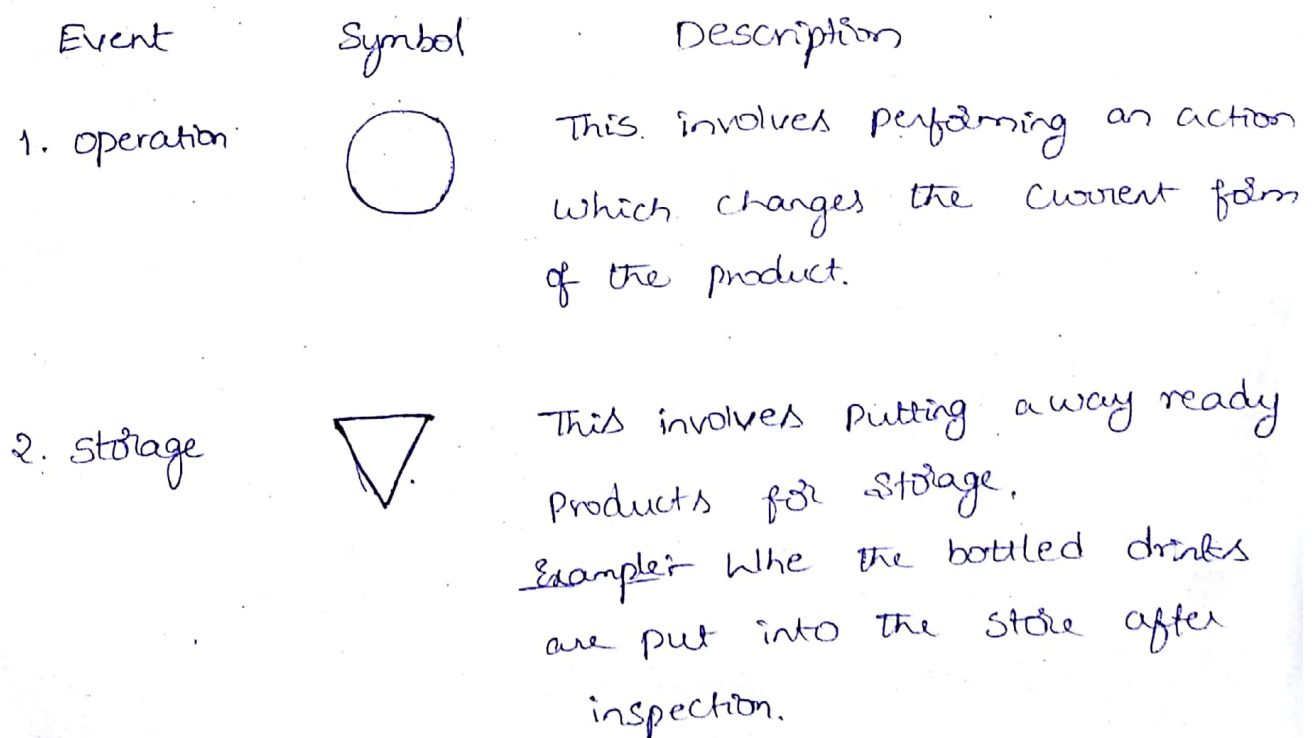 Event Symbol Description
1. operation This involves performing an action
which changes the current form
of the product.
2. storage This involves Putting away ready
Products for storage.
Example:- Whe the bottled drinks
are put into the store after
inspection.